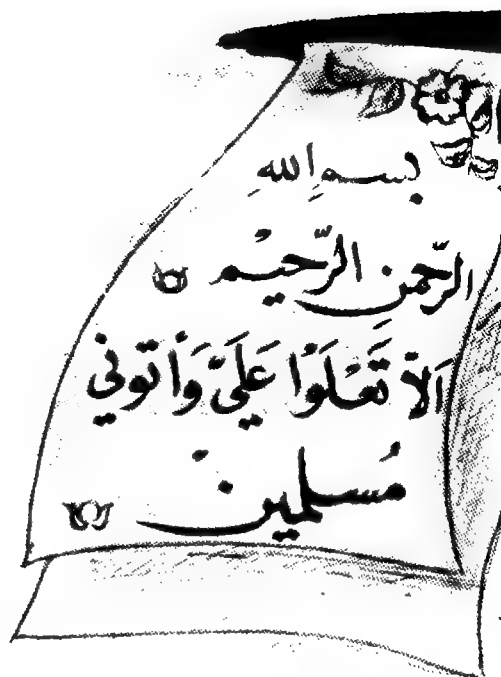 بسم اللهِ
الرّحمن الرّحيم
اَلاّ تَعْلَوْا عَلَيَّ وَأتوني
مُسلمين